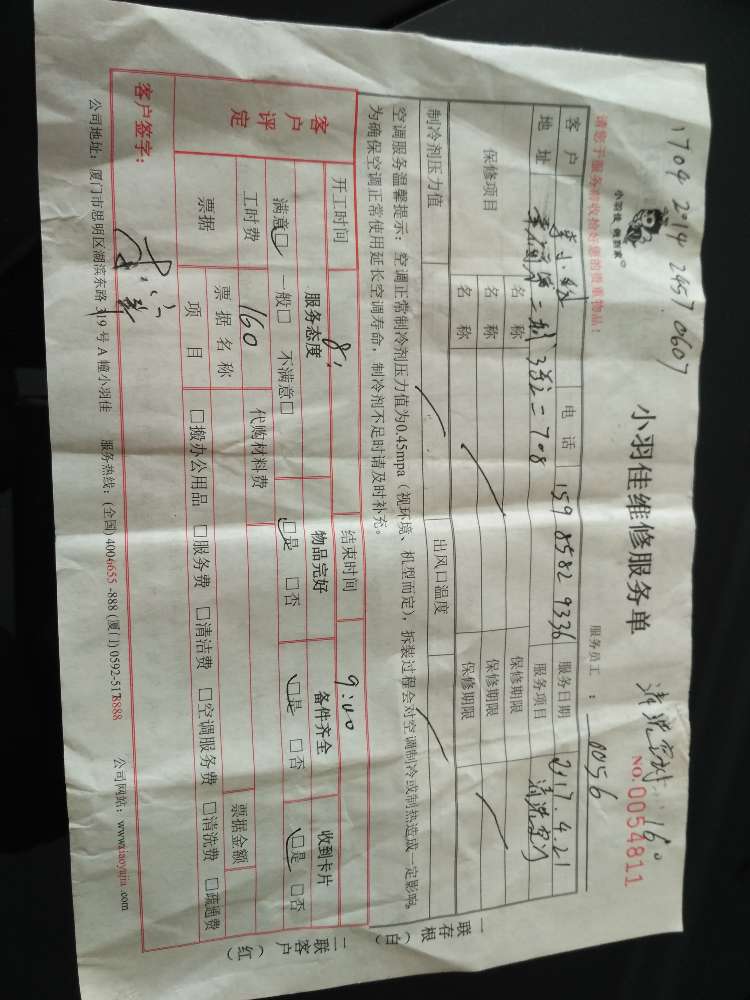 1704 2014 2657.0607
小羽佳 做到家
小羽佳维修服务单
清洗空调: 160
NO.0054811
请您于服务前收拾好您的贵重物品!
服务员工: 0056
客户 电话 159 8582 9336 服务日期 2017.4.21
地址 二708 服务项目 清洗空调
保修项目 名称 保修期限
名称 保修期限
名称 保修期限
制冷剂压力值 出风口温度
空调服务温馨提示:空调正常制冷剂压力值为0.45mpa(视环境、机型而定),拆装过程会对空调制冷或制热造成一定影响。
为确保空调正常使用延长空调寿命,制冷剂不足时请及时补充。
一联存根(白)
二联客户(红)
客户评定
开工时间 8: 结束时间 9:40
服务态度 物品完好 备件齐全 收到卡片
满意□ 一般□ 不满意□ □是 □否 □是 □否 □是 □否
工时费 160 代购材料费
票据 票据名称 票据金额
项目 □搬办公用品 □服务费 □清洁费 □空调服务费 □清洗费 □疏通费
客户签字:
公司地址:厦门市思明区湖滨东路319号A幢小羽佳 服务热线:(全国)4004655-888 (厦门)0592-5178888 公司网站:www.xiaoyujia.com